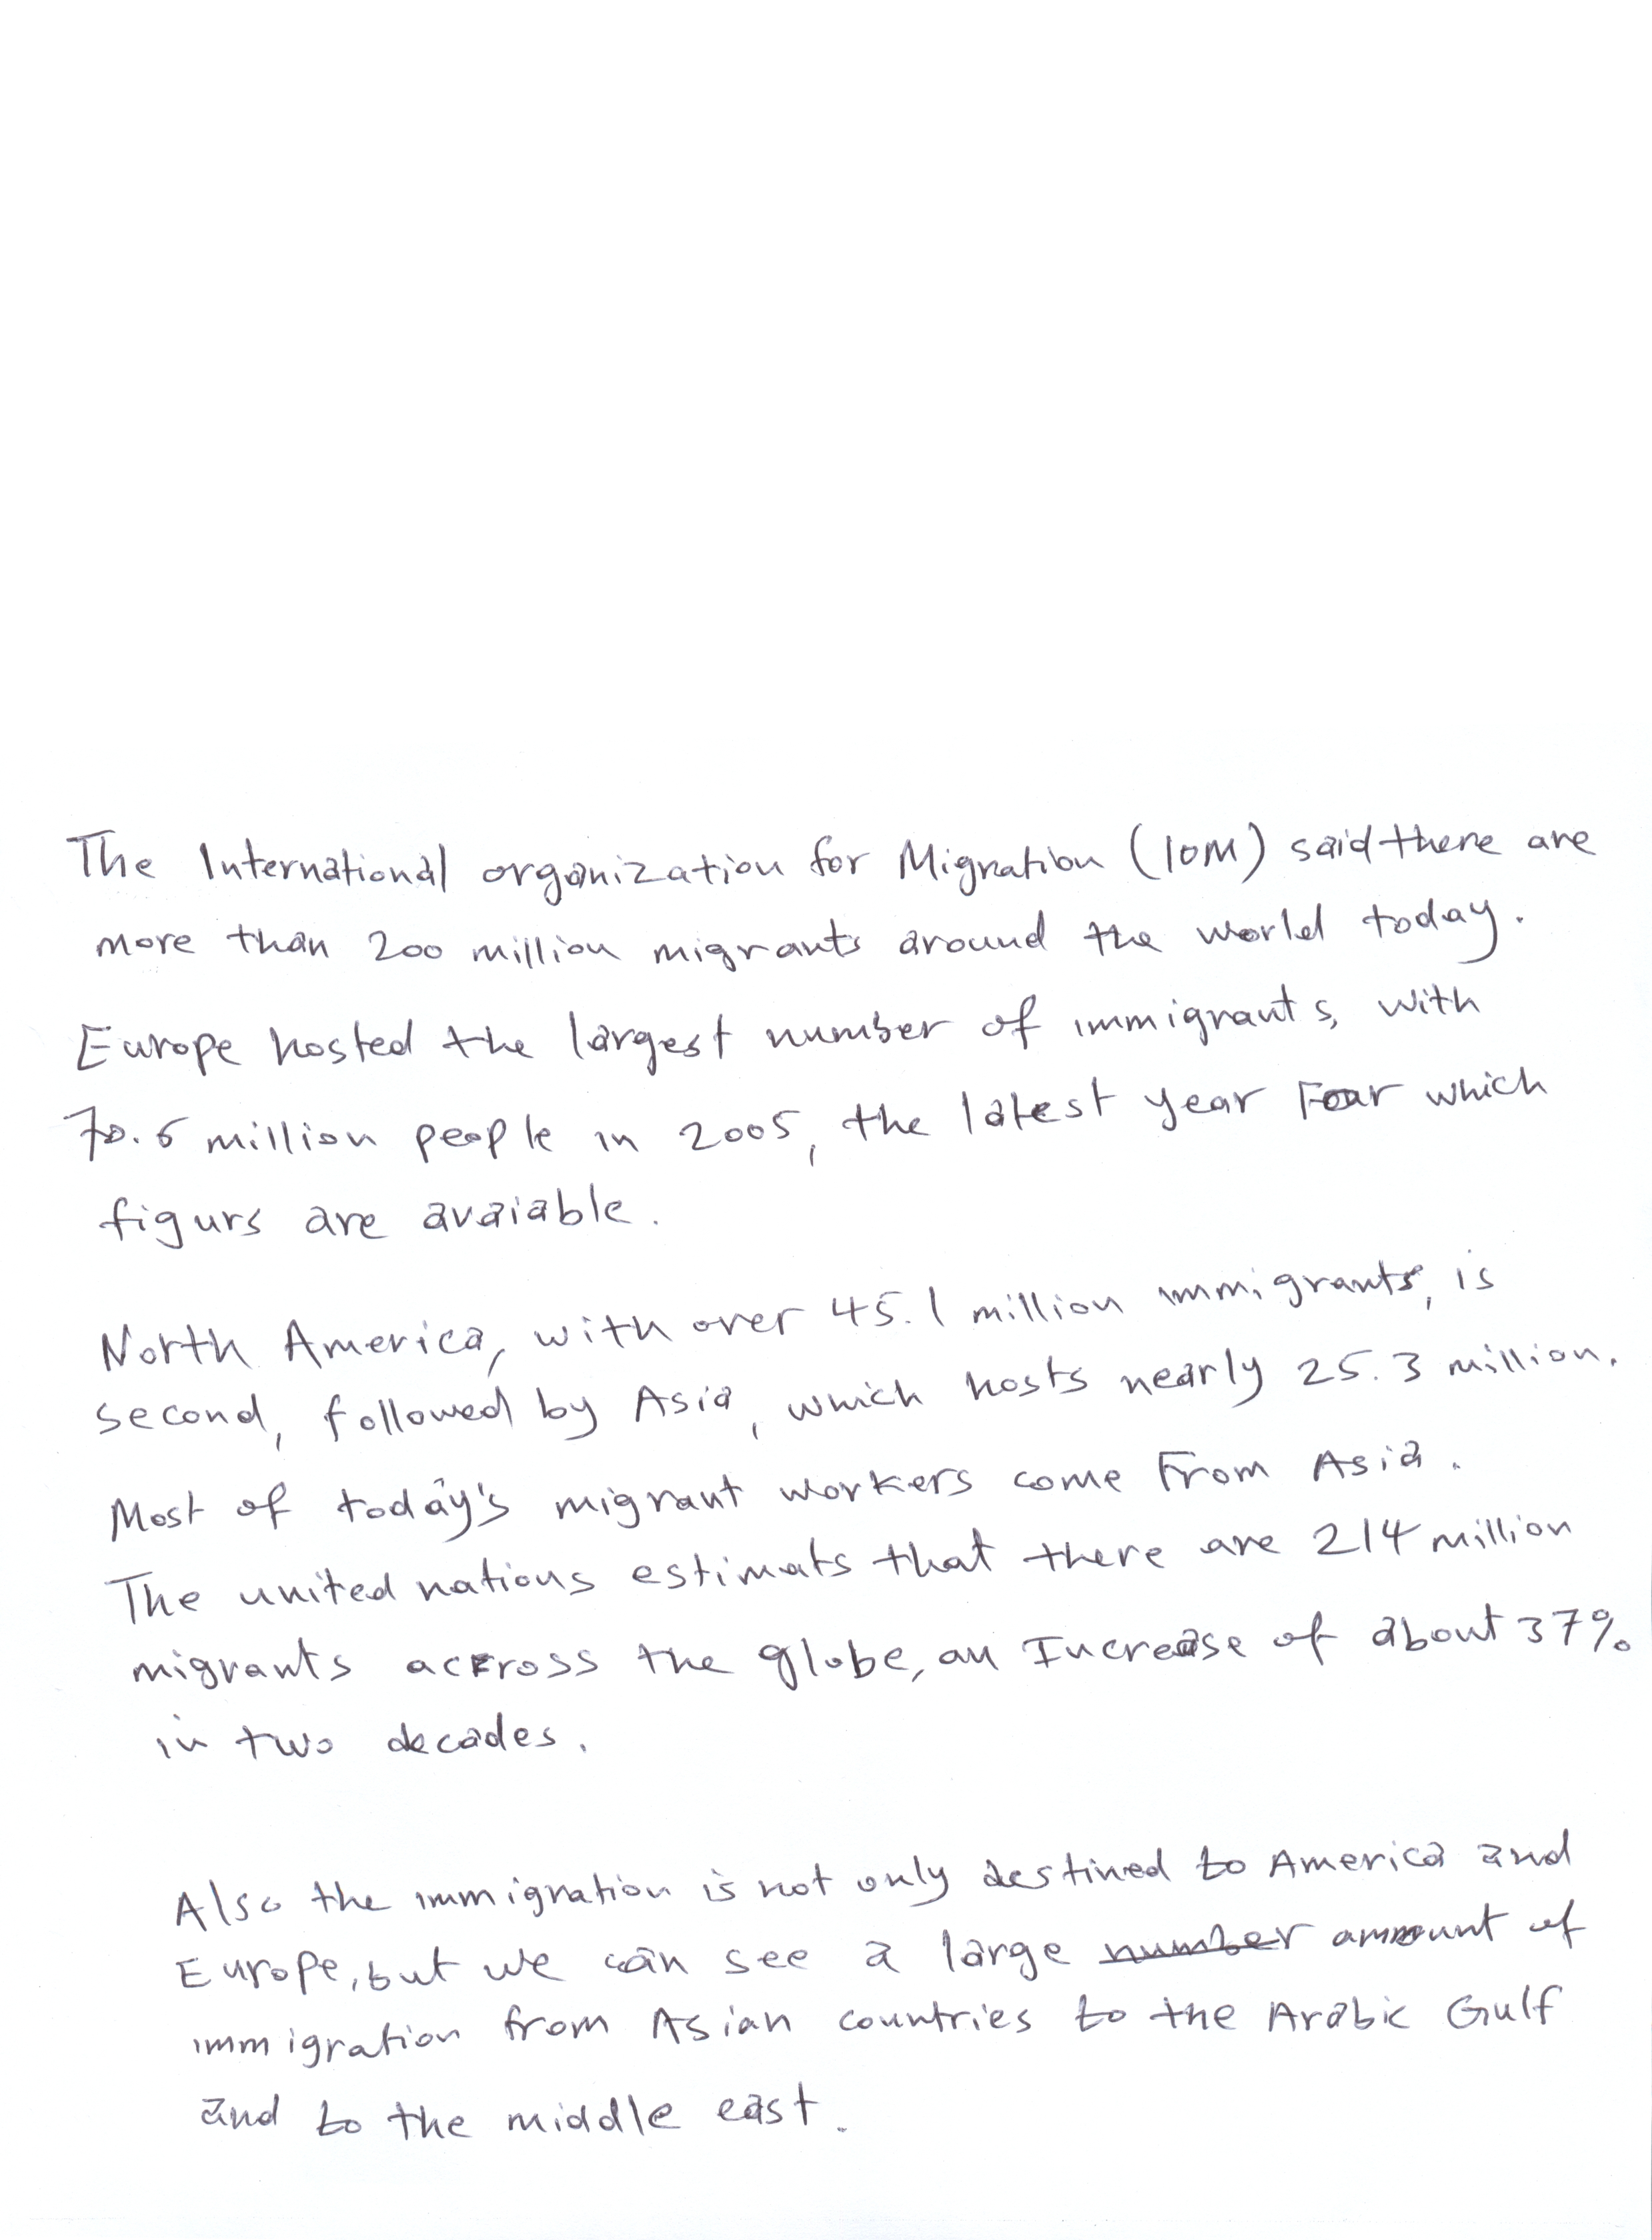 The International organization for Migration (IOM) said there are
more than 200 million migrants around the world today.
Europe hosted the largest number of immigrants, with
70.6 million people in 2005, the latest year For which
figurs are avaiable.
North America, with over 45.1 million immigrants, is
second, followed by Asia, which hosts nearly 25.3 million.
Most of today's migrant workers come From Asia.
The united nations estimats that there are 214 million
migrants across the globe, an Increase of about 37%
in two decades.
Also the immigration is not only destined to America and
Europe, but we can see a large number amount of
immigration from Asian countries to the Arabic Gulf
and to the middle east.